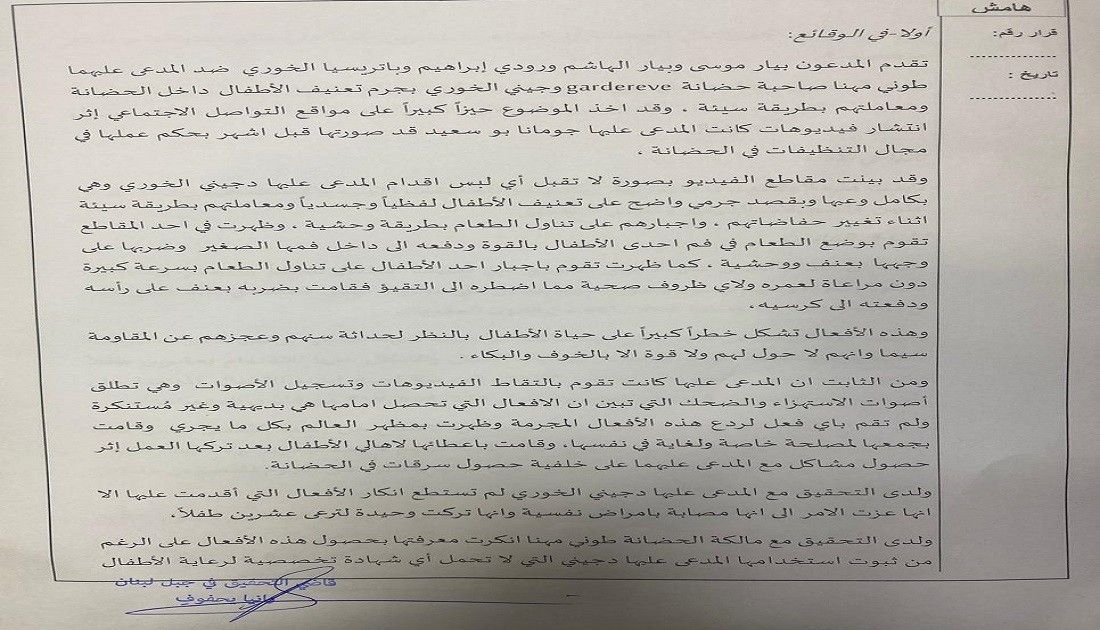 هامش
قرار رقم:
تاريخ :
أولا-في الوقائع:
تقدم المدعون بيار موسى وبيار الهاشم ورودي إبراهيم وباتريسيا الخوري ضد المدعى عليهما
طوني مهنا صاحبة حضانة gardereve وجيني الخوري بجرم تعنيف الأطفال داخل الحضانة
ومعاملتهم بطريقة سيئة . وقد اخذ الموضوع حيزاً كبيراً على مواقع التواصل الاجتماعي إثر
انتشار فيديوهات كانت المدعى عليها جومانا بو سعيد قد صورتها قبل اشهر بحكم عملها في
مجال التنظيفات في الحضانة .
وقد بينت مقاطع الفيديو بصورة لا تقبل أي لبس اقدام المدعى عليها دجيني الخوري وهي
بكامل وعيها وبقصد جرمي واضح على تعنيف الأطفال لفظياً وجسدياً ومعاملتهم بطريقة سيئة
اثناء تغيير حفاضاتهم . واجبارهم على تناول الطعام بطريقة وحشية . وظهرت في احد المقاطع
تقوم بوضع الطعام في فم احدى الأطفال بالقوة ودفعه الى داخل فمها الصغير وضربها على
وجهها بعنف ووحشية . كما ظهرت تقوم باجبار احد الأطفال على تناول الطعام بسرعة كبيرة
دون مراعاة لعمره ولاي ظروف صحية مما اضطره الى التقيؤ فقامت بضربه بعنف على رأسه
ودفعته الى كرسيه.
وهذه الأفعال تشكل خطراً كبيراً على حياة الأطفال بالنظر لحداثة سنهم وعجزهم عن المقاومة
سيما وانهم لا حول لهم ولا قوة الا بالخوف والبكاء .
ومن الثابت ان المدعى عليها كانت تقوم بالتقاط الفيديوهات وتسجيل الأصوات وهي تطلق
أصوات الاستهزاء والضحك التي تبين ان الافعال التي تحصل امامها هي بديهية وغير مُستنكرة
ولم تقم باي فعل لردع هذه الأفعال المجرمة وظهرت بمظهر العالم بكل ما يجري وقامت
بجمعها لمصلحة خاصة ولغاية في نفسها. وقامت باعطائها لاهالي الأطفال بعد تركها العمل إثر
حصول مشاكل مع المدعى عليهما على خلفية حصول سرقات في الحضانة.
ولدى التحقيق مع المدعى عليها دجيني الخوري لم تستطع انكار الأفعال التي أقدمت عليها الا
انها عزت الامر الى انها مصابة بامراض نفسية وانها تركت وحيدة لترعى عشرين طفلاً.
ولدى التحقيق مع مالكة الحضانة طوني مهنا انكرت معرفتها بحصول هذه الأفعال على الرغم
من ثبوت استخدامها المدعى عليها دجيني التي لا تحمل أي شهادة تخصصية لرعاية الأطفال
قاضي التحقيق في جبل لبنان
رانيا يحفوف